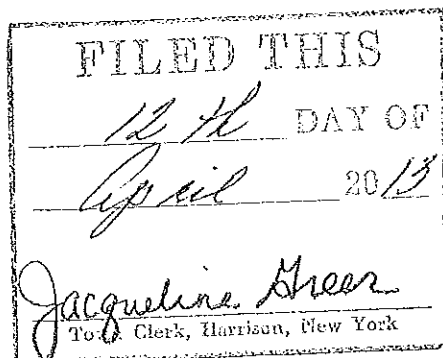 FILED THIS
12th DAY OF
April 2013
Jacqueline Greer
Town Clerk, Harrison, New York